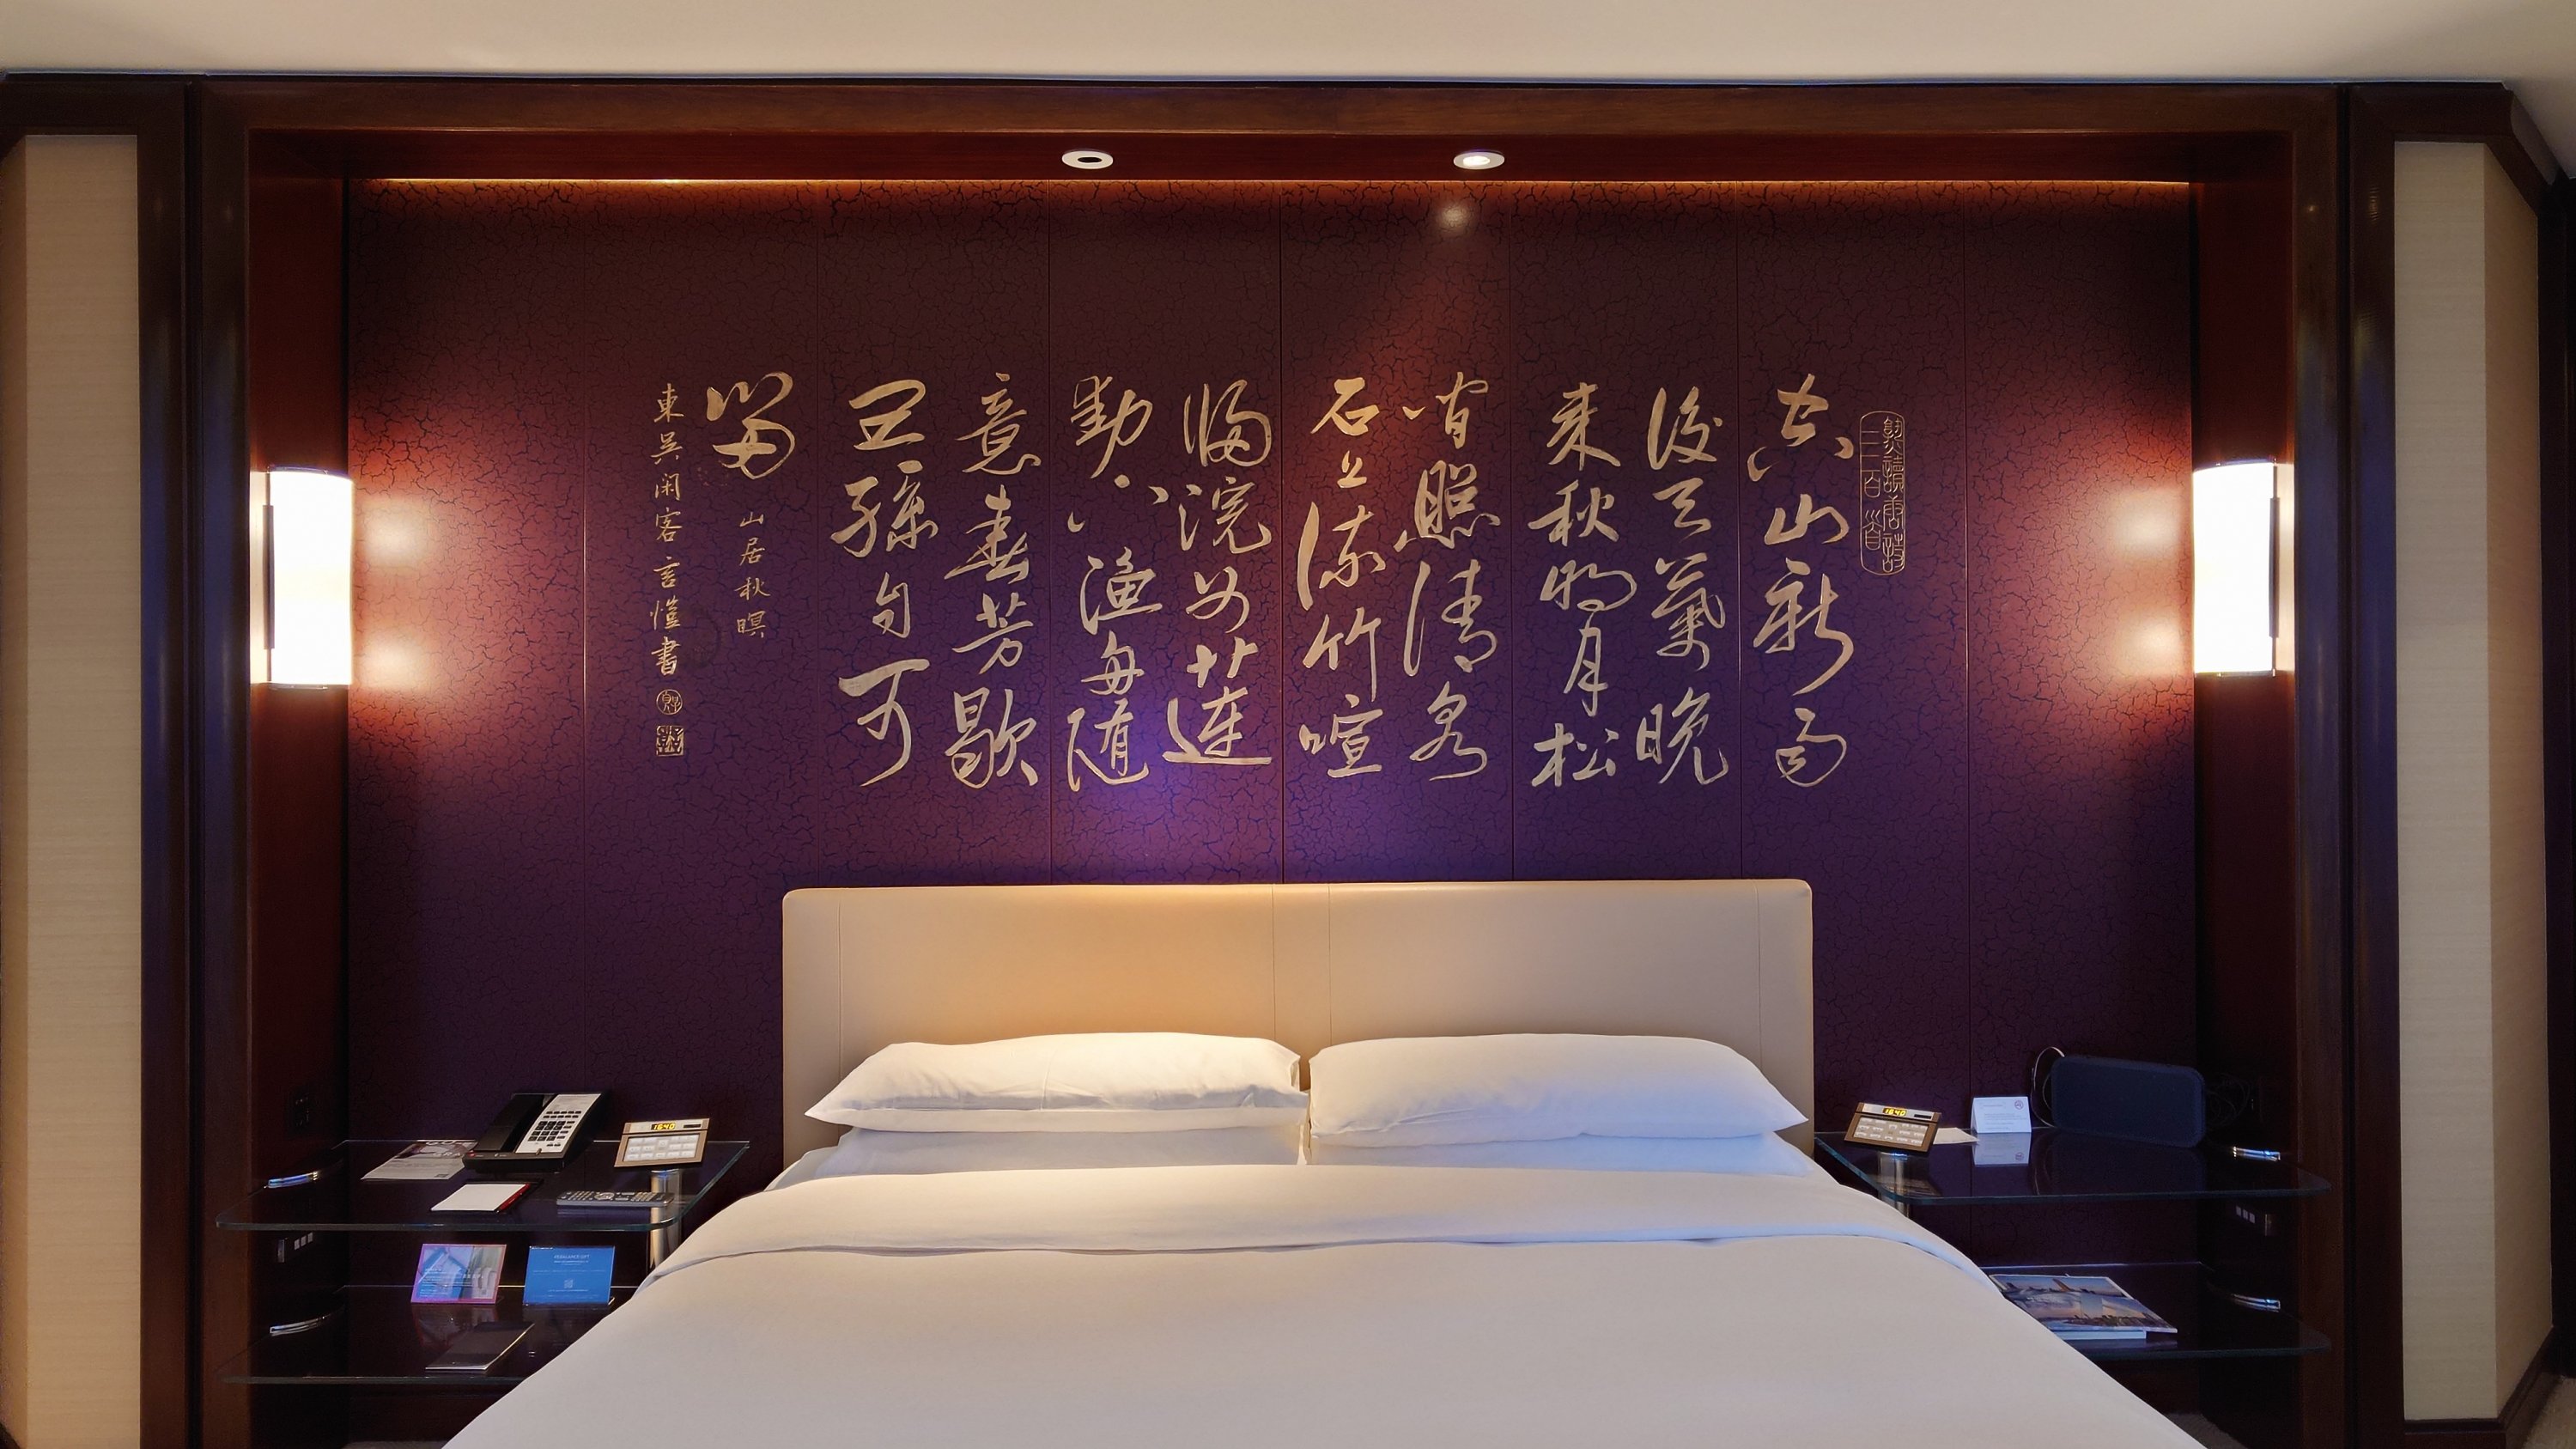 熟讀唐詩
三百首
空山新雨
後天氣晚
来秋明月松
間照清泉
石上流竹喧
歸浣女蓮
動下漁舟随
意春芳歇
王孫自可
留
山居秋暝
東吳闲客言愷書